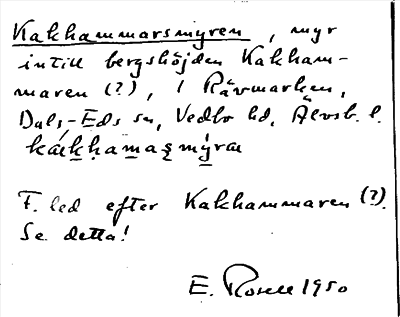 Kakhammarsmyren, myr
intill bergshöjden Kakham-
maren (?), i Rävmarken,
Dals-Eds sn, Vedbo hd, Älvsb. l.
kákhamaṣmýra
F. led efter Kakhammaren (?).
Se detta!
E. Rosell 1950